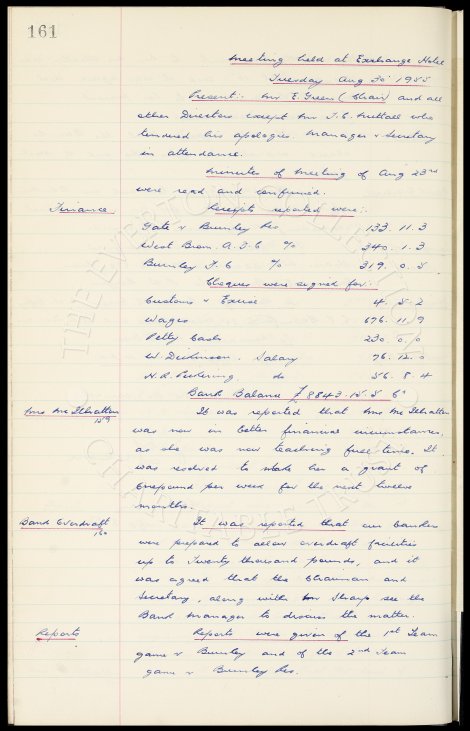 161
Meeting held at Exchange Hotel
Tuesday Aug 30 1955
Present:- Mr E. Green (Chair) and all
other Directors except Mr T.C. Nuttall who
tendered his apologies. Manager & Secretary
in attendance.
Minutes of Meeting of Aug 23rd
were read and confirmed.
Finance Receipts reported were:-
Gate v Burnley Res 133. 11. 3
West Brom. A.F.C % 240. 1. 3
Burnley F.C % 319. 0. 5
Cheques were signed for:-
Customs & Excise 4. 5. 2
Wages 676. 11. 9
Petty Cash 230. 0. 0
W. Dickinson. Salary 76. 12. 0
H.R. Pickering do 56. 8. 4
Bank Balance £8843. 15. 5.
Mrs McIlhatton It was reported that Mrs McIlhatton
was now in better financial circumstances,
as she was now teaching full time. It
was resolved to make her a grant of
Onepound per week for the next twelve
months.
Bank Overdraft It was reported that our bankers
were prepared to allow overdraft facilities
up to Twenty thousand pounds, and it
was agreed that the Chairman and
Secretary, along with Mr Sharp see the
Bank Manager to discuss the matter.
Reports Reports were given of the 1st Team
game v Burnley and of the 2nd Team
game v Burnley Res.
THE EVERTON COLLECTION
CHARITABLE TRUST